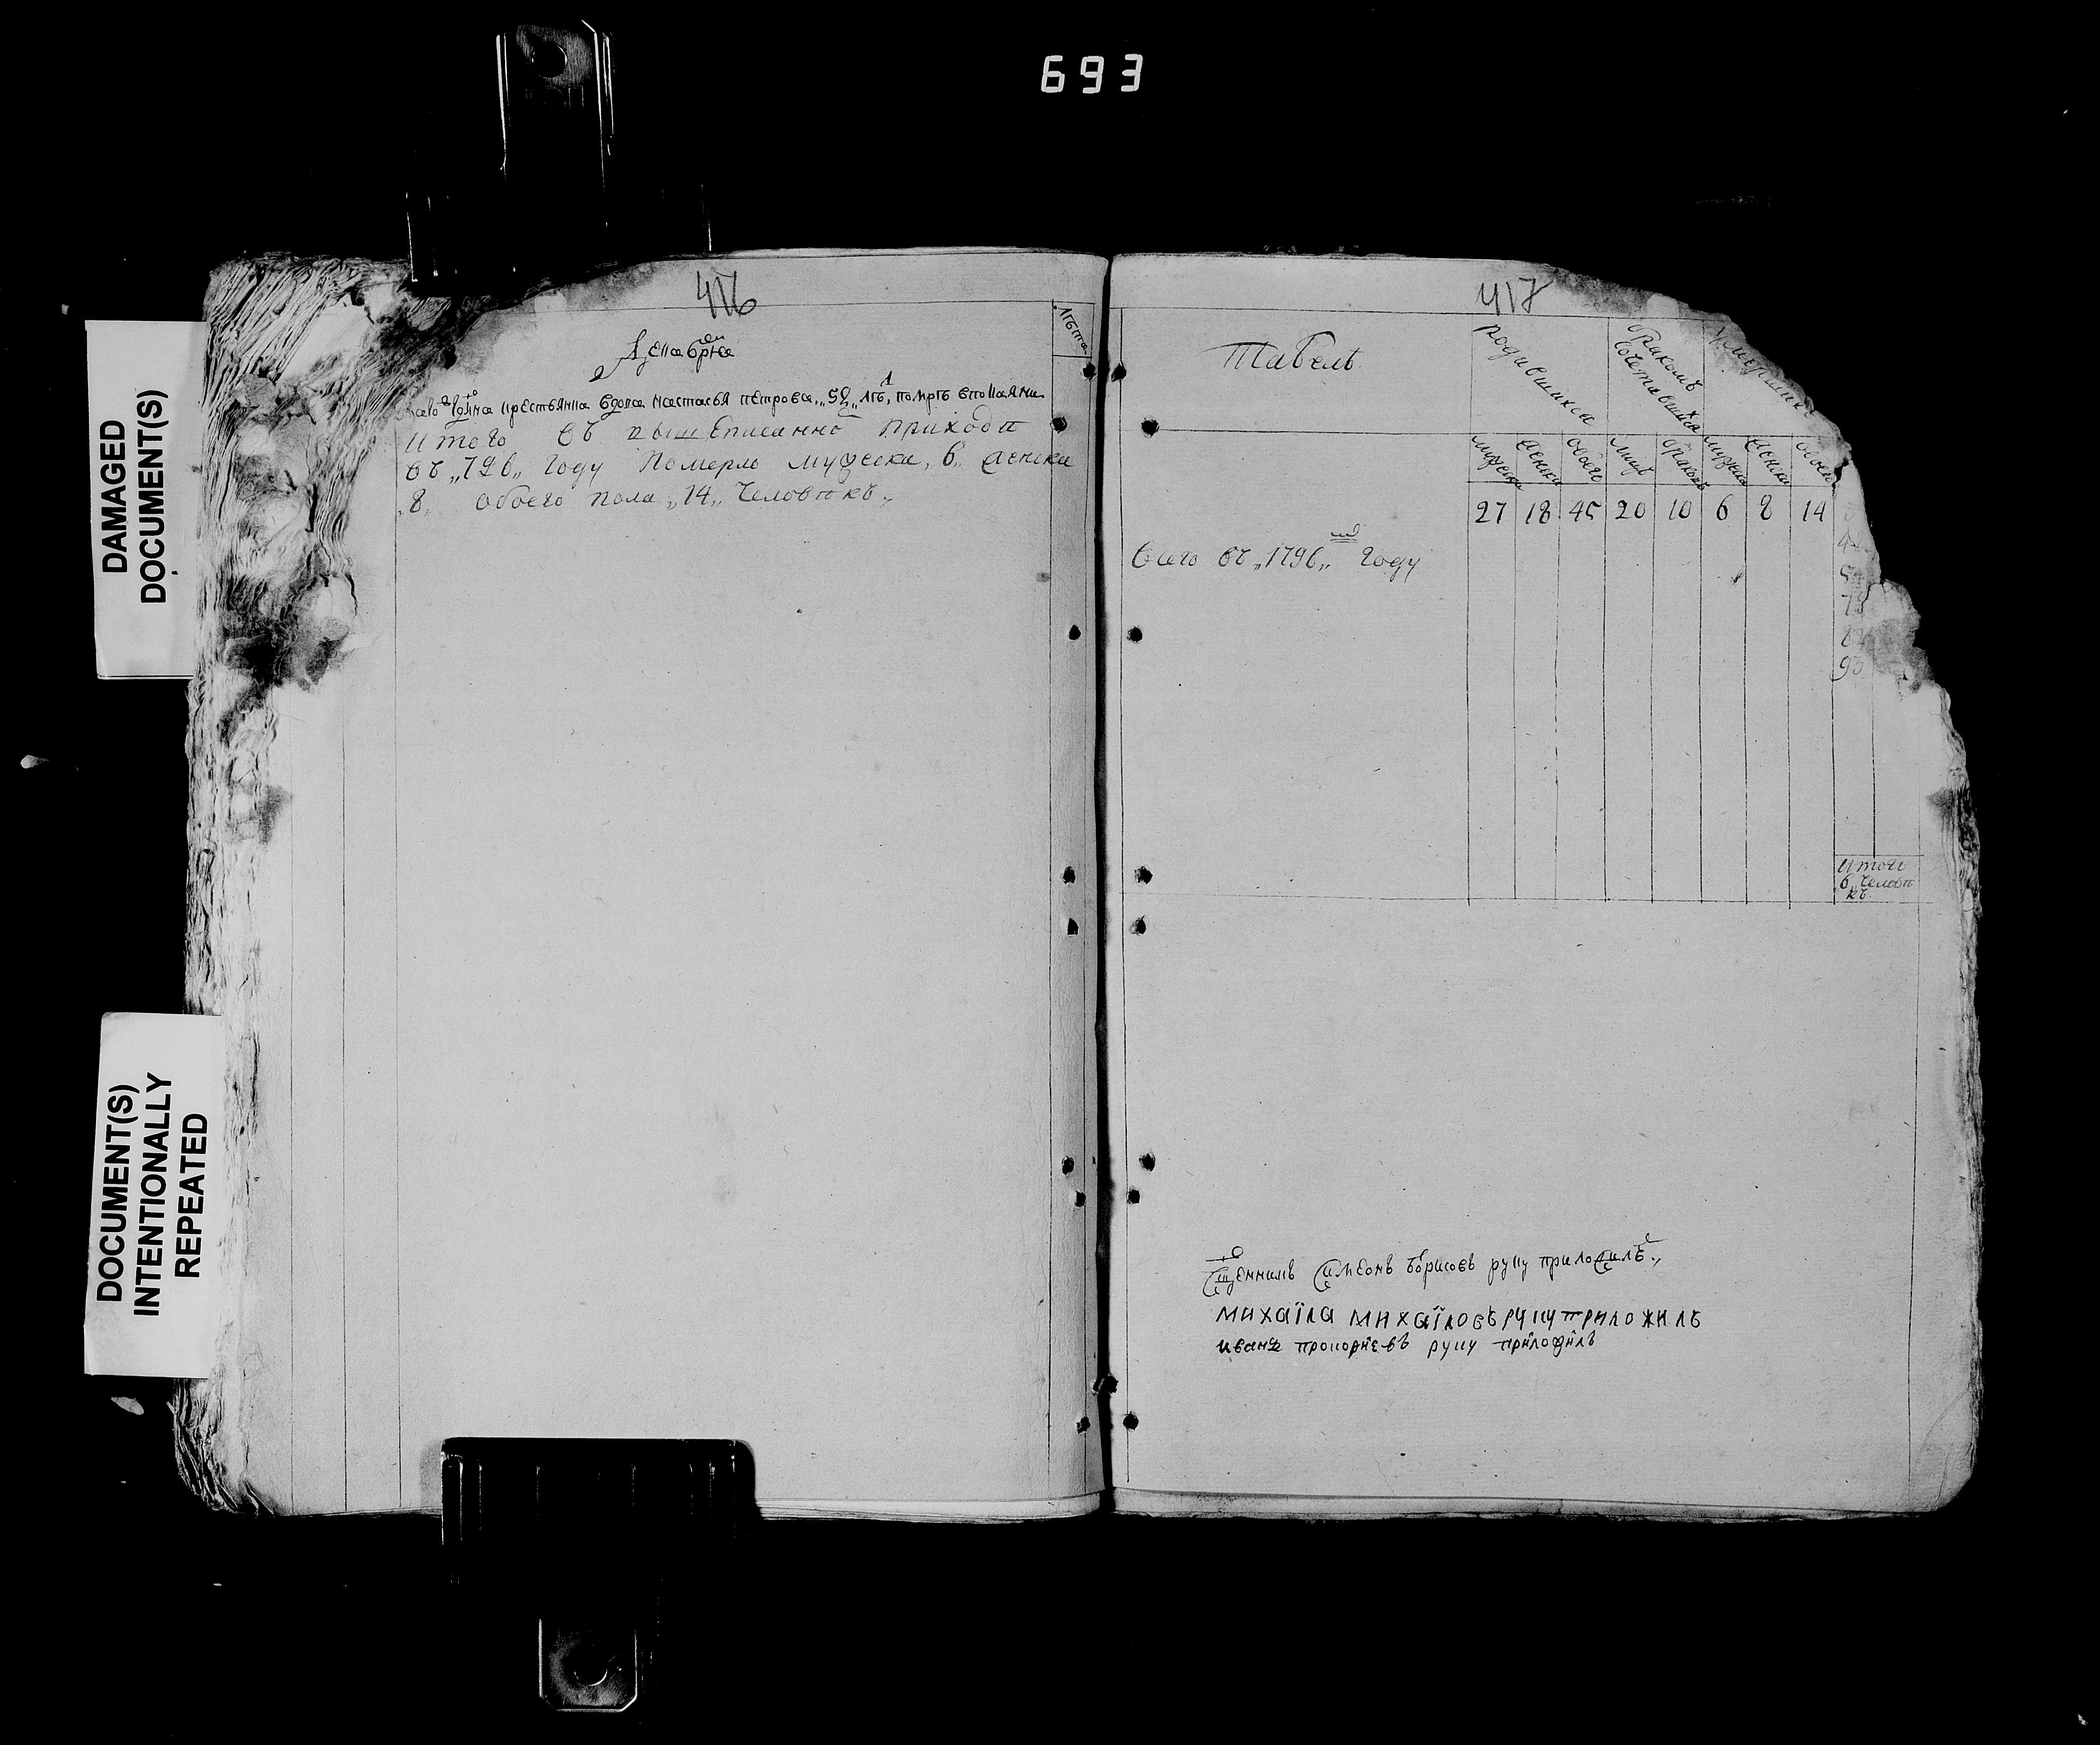 693
DAMAGED
DOCUMENT(S)
DOCUMENT(S)
INTENTIONALLY
REPEATED
416
лѣта
Декабрѧ
крестьянка вдова настасья петрова „58„ лѣ, помрѣ
Итого въ вышеписанно приходѣ
въ „796„ году Померло мужеска, 6„ женска
„8„ обоего пола „14„ человѣкъ„
417
Табель
родившихся
бракомъ сочетавшихся
умерших
мужеска
женска
обоего
лицъ
браковъ
мужеска
женска
обоего
27 18 45 20 10 6 8 14
всего въ „1796„ году
93
Итого
6 человѣ
къ
Сщенникъ Симеонъ борисовъ руку приложилъ
михаїла михаїловъ руку приложилъ
иванъ прокопїевъ руку приложилъ